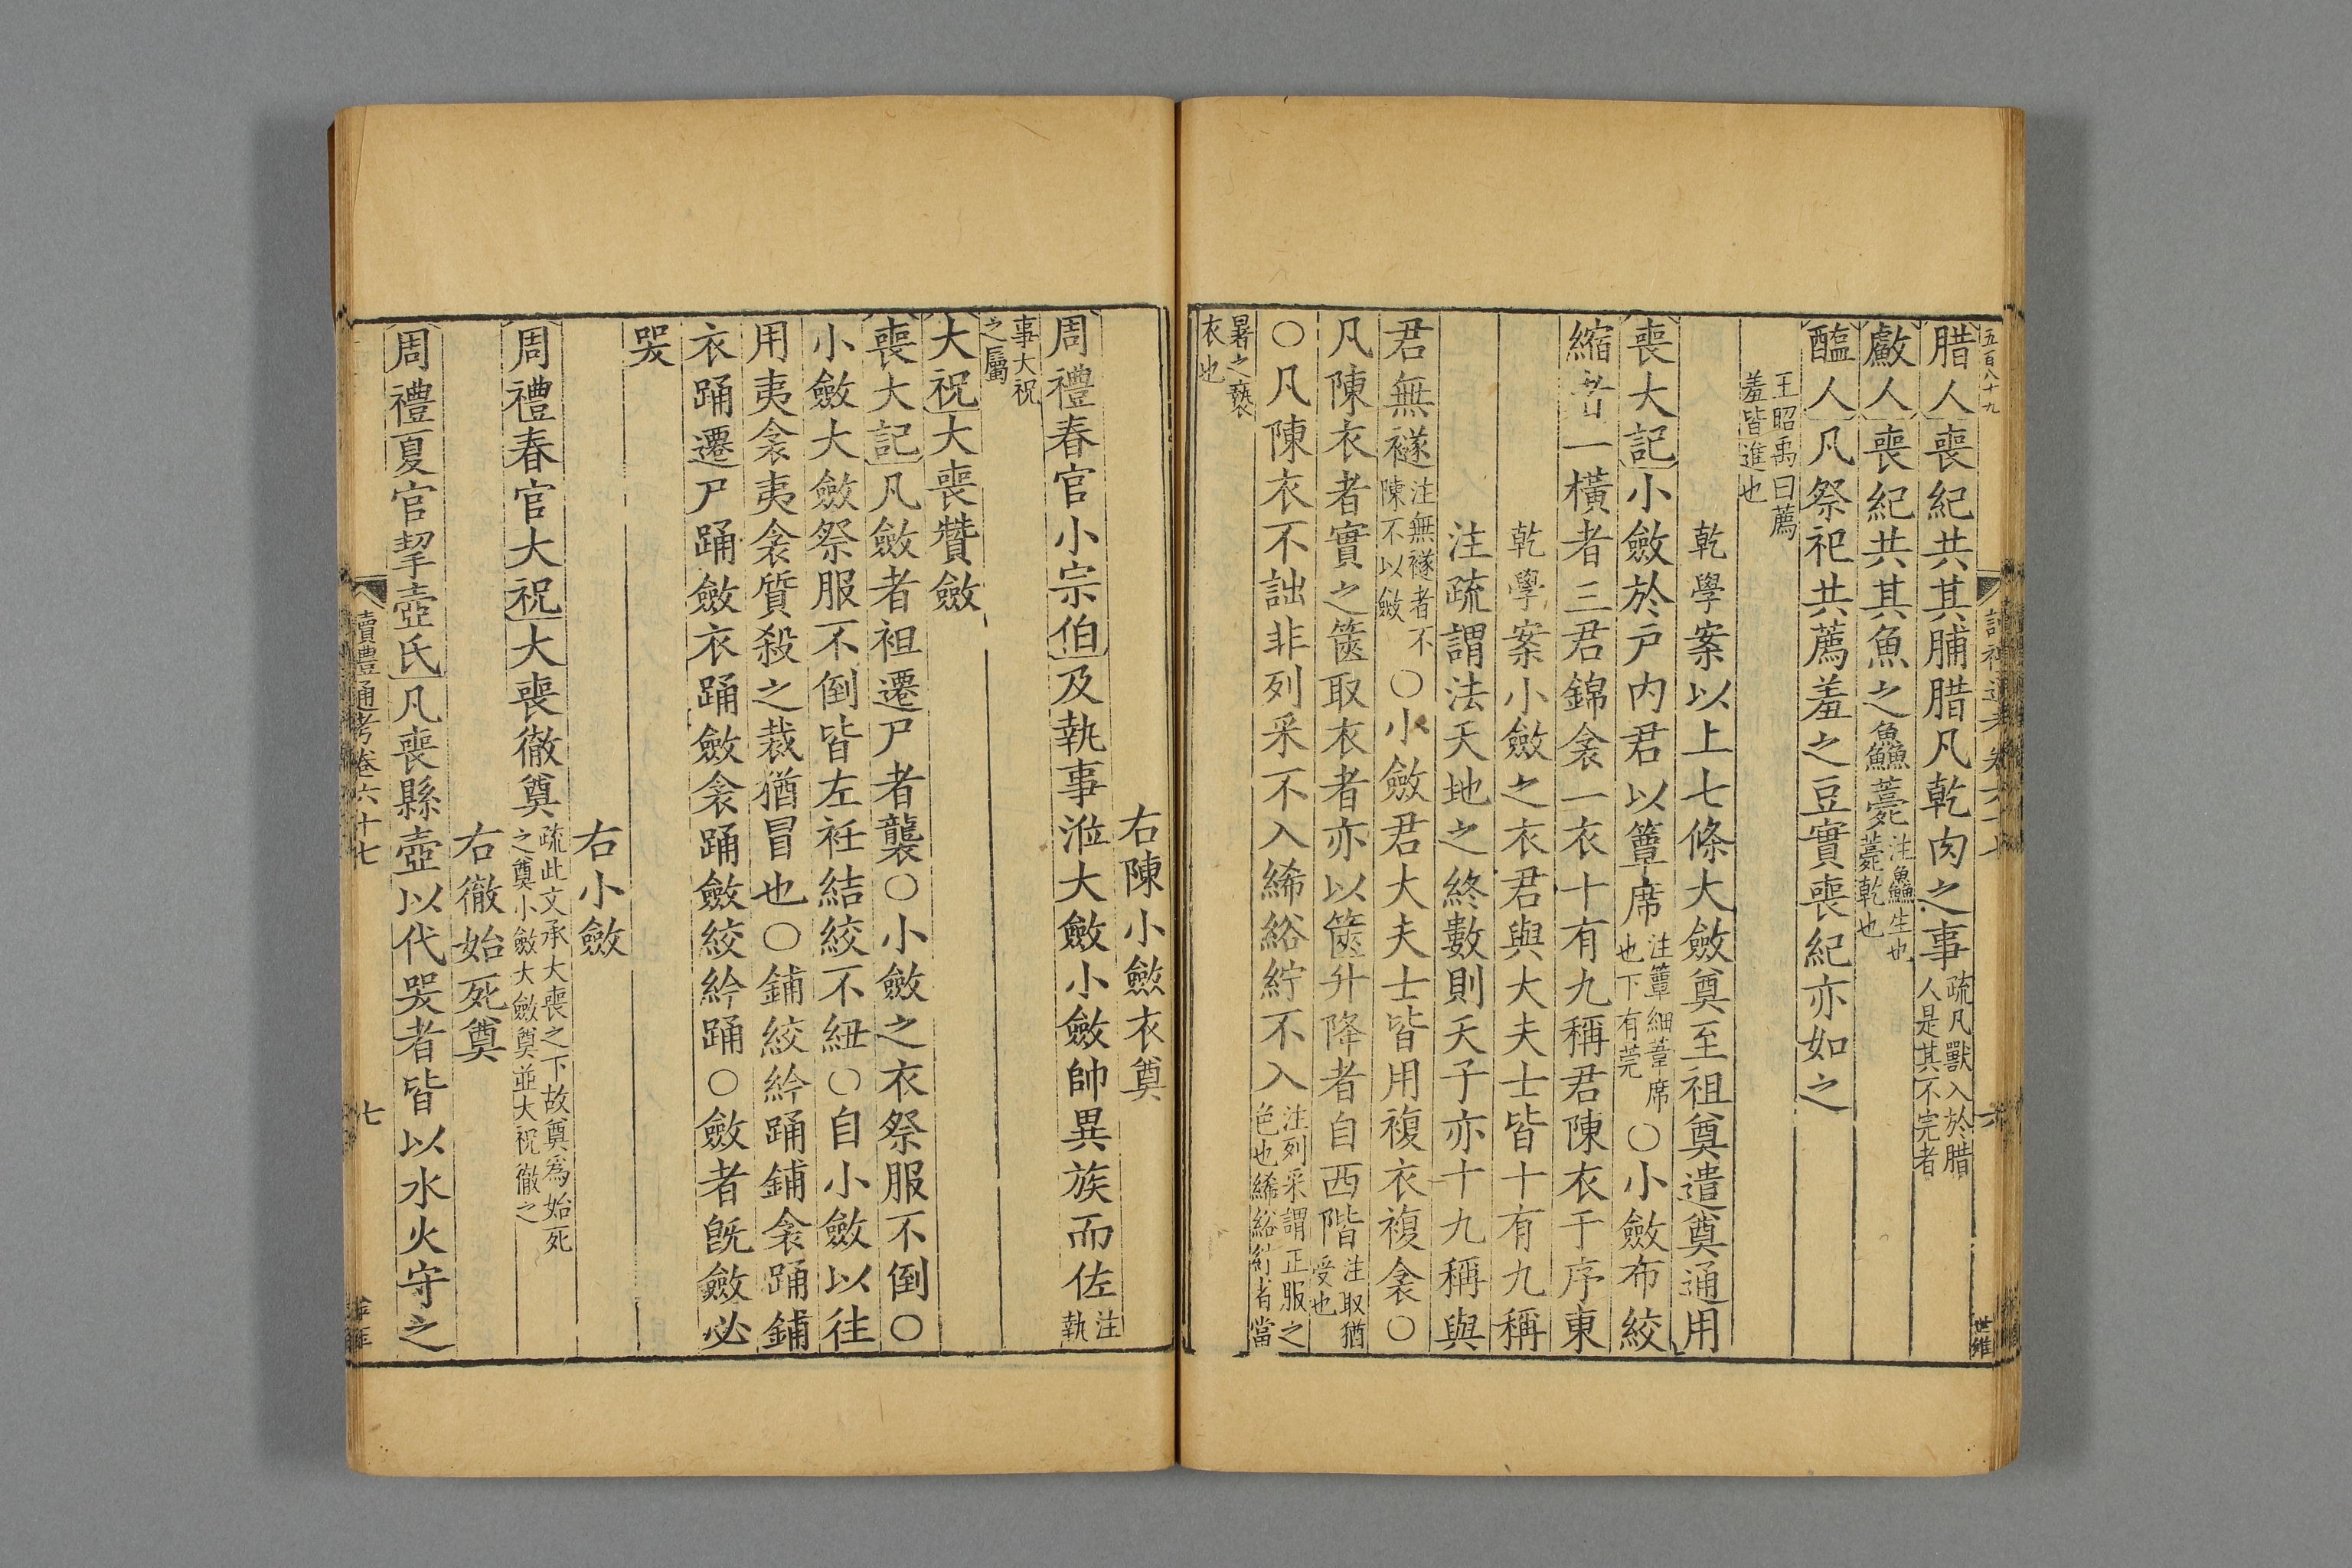 五百八十九
腊人喪紀共其脯腊凡乾肉之事疏凡獸入於腊人是其不完者
䱷人喪紀共其魚之鱻薧注鱻生也薧乾也
醢人凡祭祀共薦羞之豆實喪紀亦如之
王昭禹曰薦羞皆進也
乾學案以上七條大斂奠至祖奠遣奠通用
喪大記小斂於戶内君以簟席注簟細葦席也下有莞○小斂布絞
縮者一橫者三君錦衾一衣十有九稱君陳衣于序東
乾學案小斂之衣君與大夫士皆十有九稱
注疏謂法天地之終數則天子亦十九稱與
君無襚注無襚者不陳不以斂○小斂君大夫士皆用複衣複衾○
凡陳衣者實之篋取衣者亦以篋升降者自西階注取猶受也
○凡陳衣不詘非列采不入絺綌紵不入注列采謂正服之色也絺綌紵者當
暑之褻衣也
世維
右陳小斂衣奠
周禮春官小宗伯及執事涖大斂小斂帥異族而佐注執
事大祝之屬
大祝大喪贊斂
喪大記凡斂者袒遷尸者襲○小斂之衣祭服不倒○
小斂大斂祭服不倒皆左衽結絞不紐○自小斂以往
用夷衾夷衾質殺之裁猶冒也○鋪絞紟踊鋪衾踊鋪
衣踊遷尸踊斂衣踊斂衾踊斂絞紟踊○斂者旣斂必
哭
右小斂
周禮春官大祝大喪徹奠疏此文承大喪之下故奠爲始死之奠小斂大斂奠並大祝徹之
右徹始死奠
周禮夏官挈壺氏凡喪縣壺以代哭者皆以水火守之
讀禮通考卷六十七
七